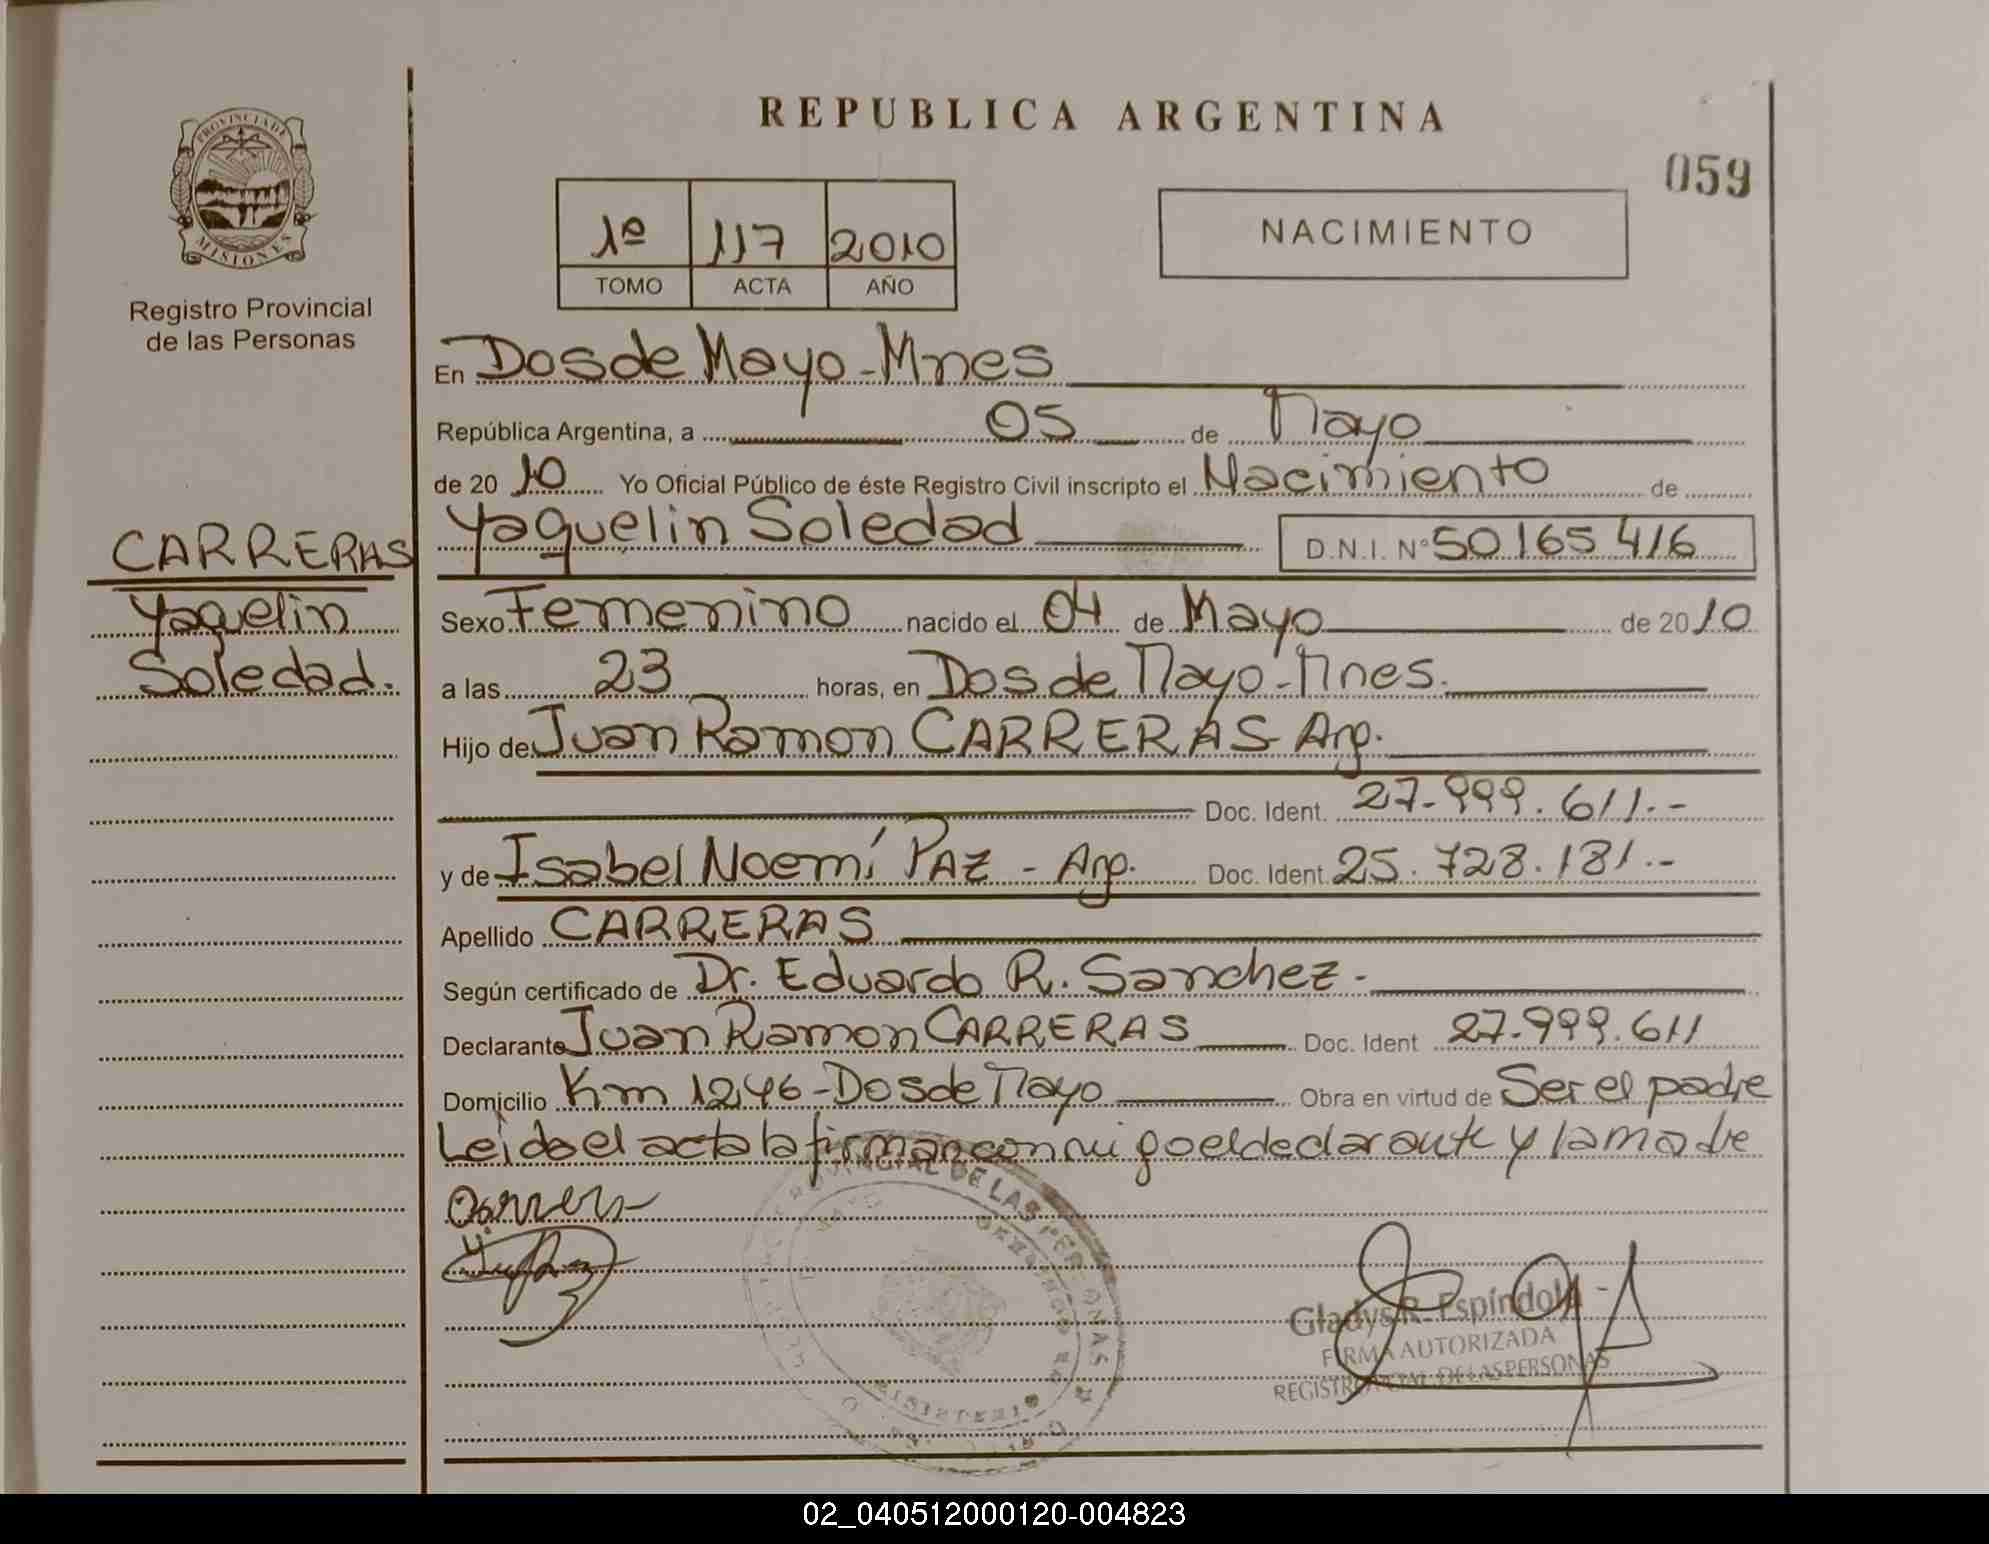 REPUBLICA ARGENTINA
059
PROVINCIA DE
MISIONES
Registro Provincial
de las Personas
1º 117 2010
TOMO ACTA AÑO
NACIMIENTO
En Dos de Mayo - Mnes
República Argentina, a 05 de Mayo
de 2010 Yo Oficial Público de éste Registro Civil inscripto el Nacimiento de
CARRERAS
Yaquelin
Soledad.
Yaquelin Soledad D.N.I. Nº 50165416
Sexo Femenino nacido el 04 de Mayo de 2010
a las 23 horas, en Dos de Mayo - Mnes.
Hijo de Juan Ramon CARRERAS Arg.
Doc. Ident. 27.999.611.-
y de Isabel Noemí PAZ - Arg. Doc. Ident. 25.728.181.-
Apellido CARRERAS
Según certificado de Dr. Eduardo R. Sanchez -
Declarante Juan Ramon CARRERAS Doc. Ident 27.999.611
Domicilio Km 1246 - Dos de Mayo Obra en virtud de Ser el padre
Leida el acta la firman conmigo el declarante y la madre
DE LAS PERSONAS
Gladys R. Espíndola
FIRMA AUTORIZADA
DE LAS PERSONAS
02_040512000120-004823